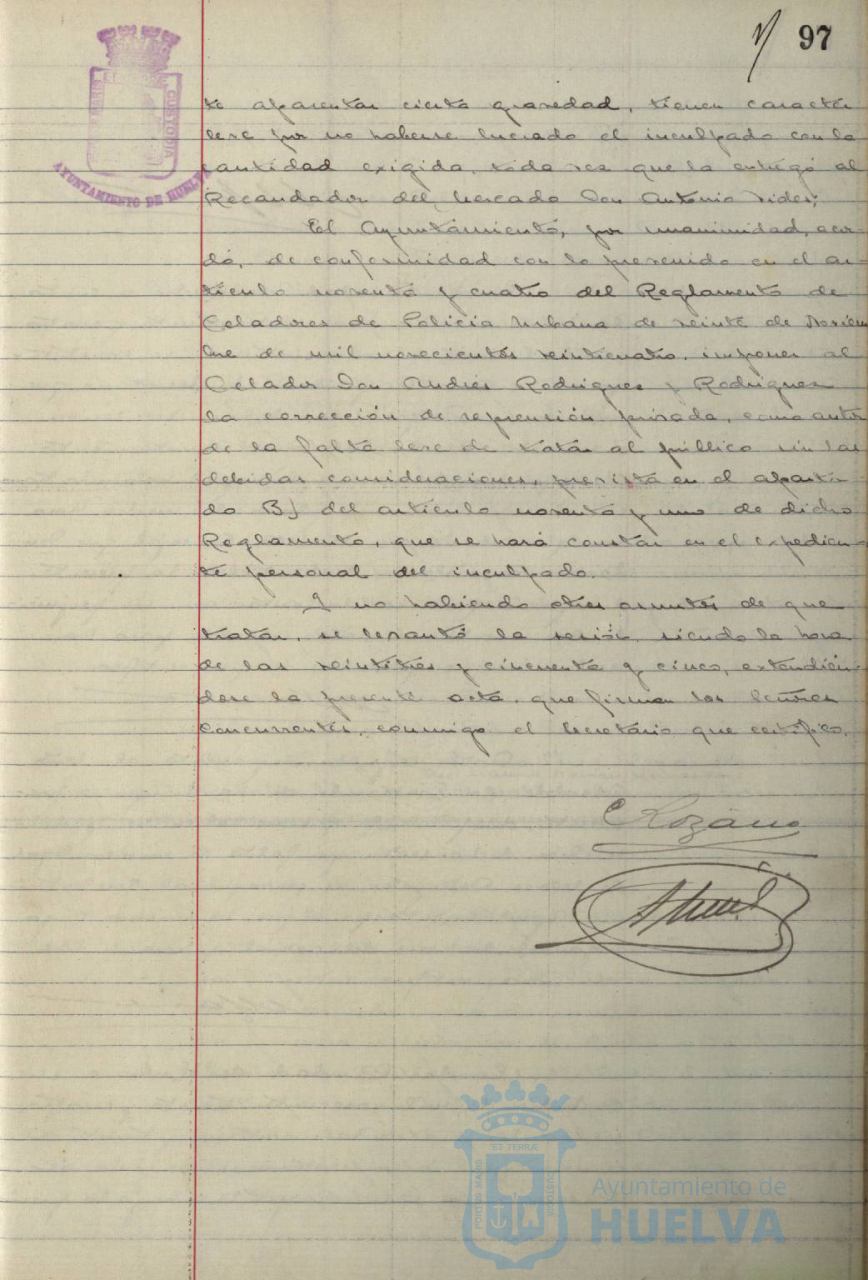 97
te aparentar cierta gravedad, tienen caracter
leve por no haberse lucrado el inculpado con la
cantidad exigida, toda vez que la entregó al
Recaudador del Mercado Don Antonio Vides;
El Ayuntamiento, por unanimidad, acor-
dó, de conformidad con lo prevenido en el ar-
tículo noventa y cuatro del Reglamento de
Celadores de Policia Urbana de veinte de Noviem-
bre de mil novecientos veinticuatro, imponer al
Celador Don Andrés Rodriguez y Rodriguez
la corrección de reprensión privada, como autor
de la falta leve de tratar al público sin las
debidas consideraciones, prevista en el aparta-
do B) del artículo noventa y uno de dicho
Reglamento, que se hará constar en el expedien-
te personal del inculpado.
Y no habiendo otros asuntos de que
tratar, se levantó la sesión, siendo la hora
de las veintitres y cincuenta y cinco, extendién-
dose la presente acta, que firman los Señores
concurrentes, conmigo el Secretario que certifico.
C Lozano
AYUNTAMIENTO DE HUELVA
CUSTODIA
ET TERRÆ
PORTUS MARIS
CUSTODIA
Ayuntamiento de
HUELVA